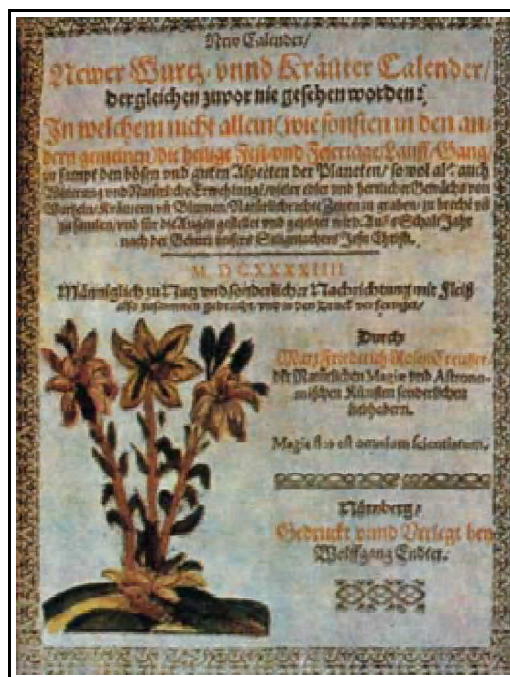 New Calender/
Newer Wurtz- vnnd Kräutter Calender/
dergleichen zuvor nie gesehen worden:
In welchem nicht allein/ wie sonsten in den an-
dern gemeinen/ die heilige Fest- vnd Feiertage/ Lauff/ Gang
in sampt den bösen vnd guten Aspecten der Planeten/ so wol als auch
Witterung vnd Natürliche Erwehlung/ vieler edler vnd herrlicher Gewächs von
Wurtzeln/ Kräutern vñ Blumen Natürliche rechte Zeiten zu graben/ zu brechē vñ
zu samlen/ vnd für die Augen gestellet vnd gezeiget wird. Auff Schalt Jahr
nach der Geburt vnsers Seligmachers Jesu Christi.
M. DCXXXXIIII
Männiglich zu Nutz vnd sonderlicher Nachrichtung mit Fleiß
also zusammen gebracht/ vnd in den Druck verfertiget/
Durch
Marx Friederich Rosencreutzer,
der Natürlichen Magie vnd Astrono-
mischen Künsten sonderlichen
liebhabern.
Magie est scientiarum.
Nürnberg/
Gedruckt vnnd Verlegt bey
Wolffgang Endter.